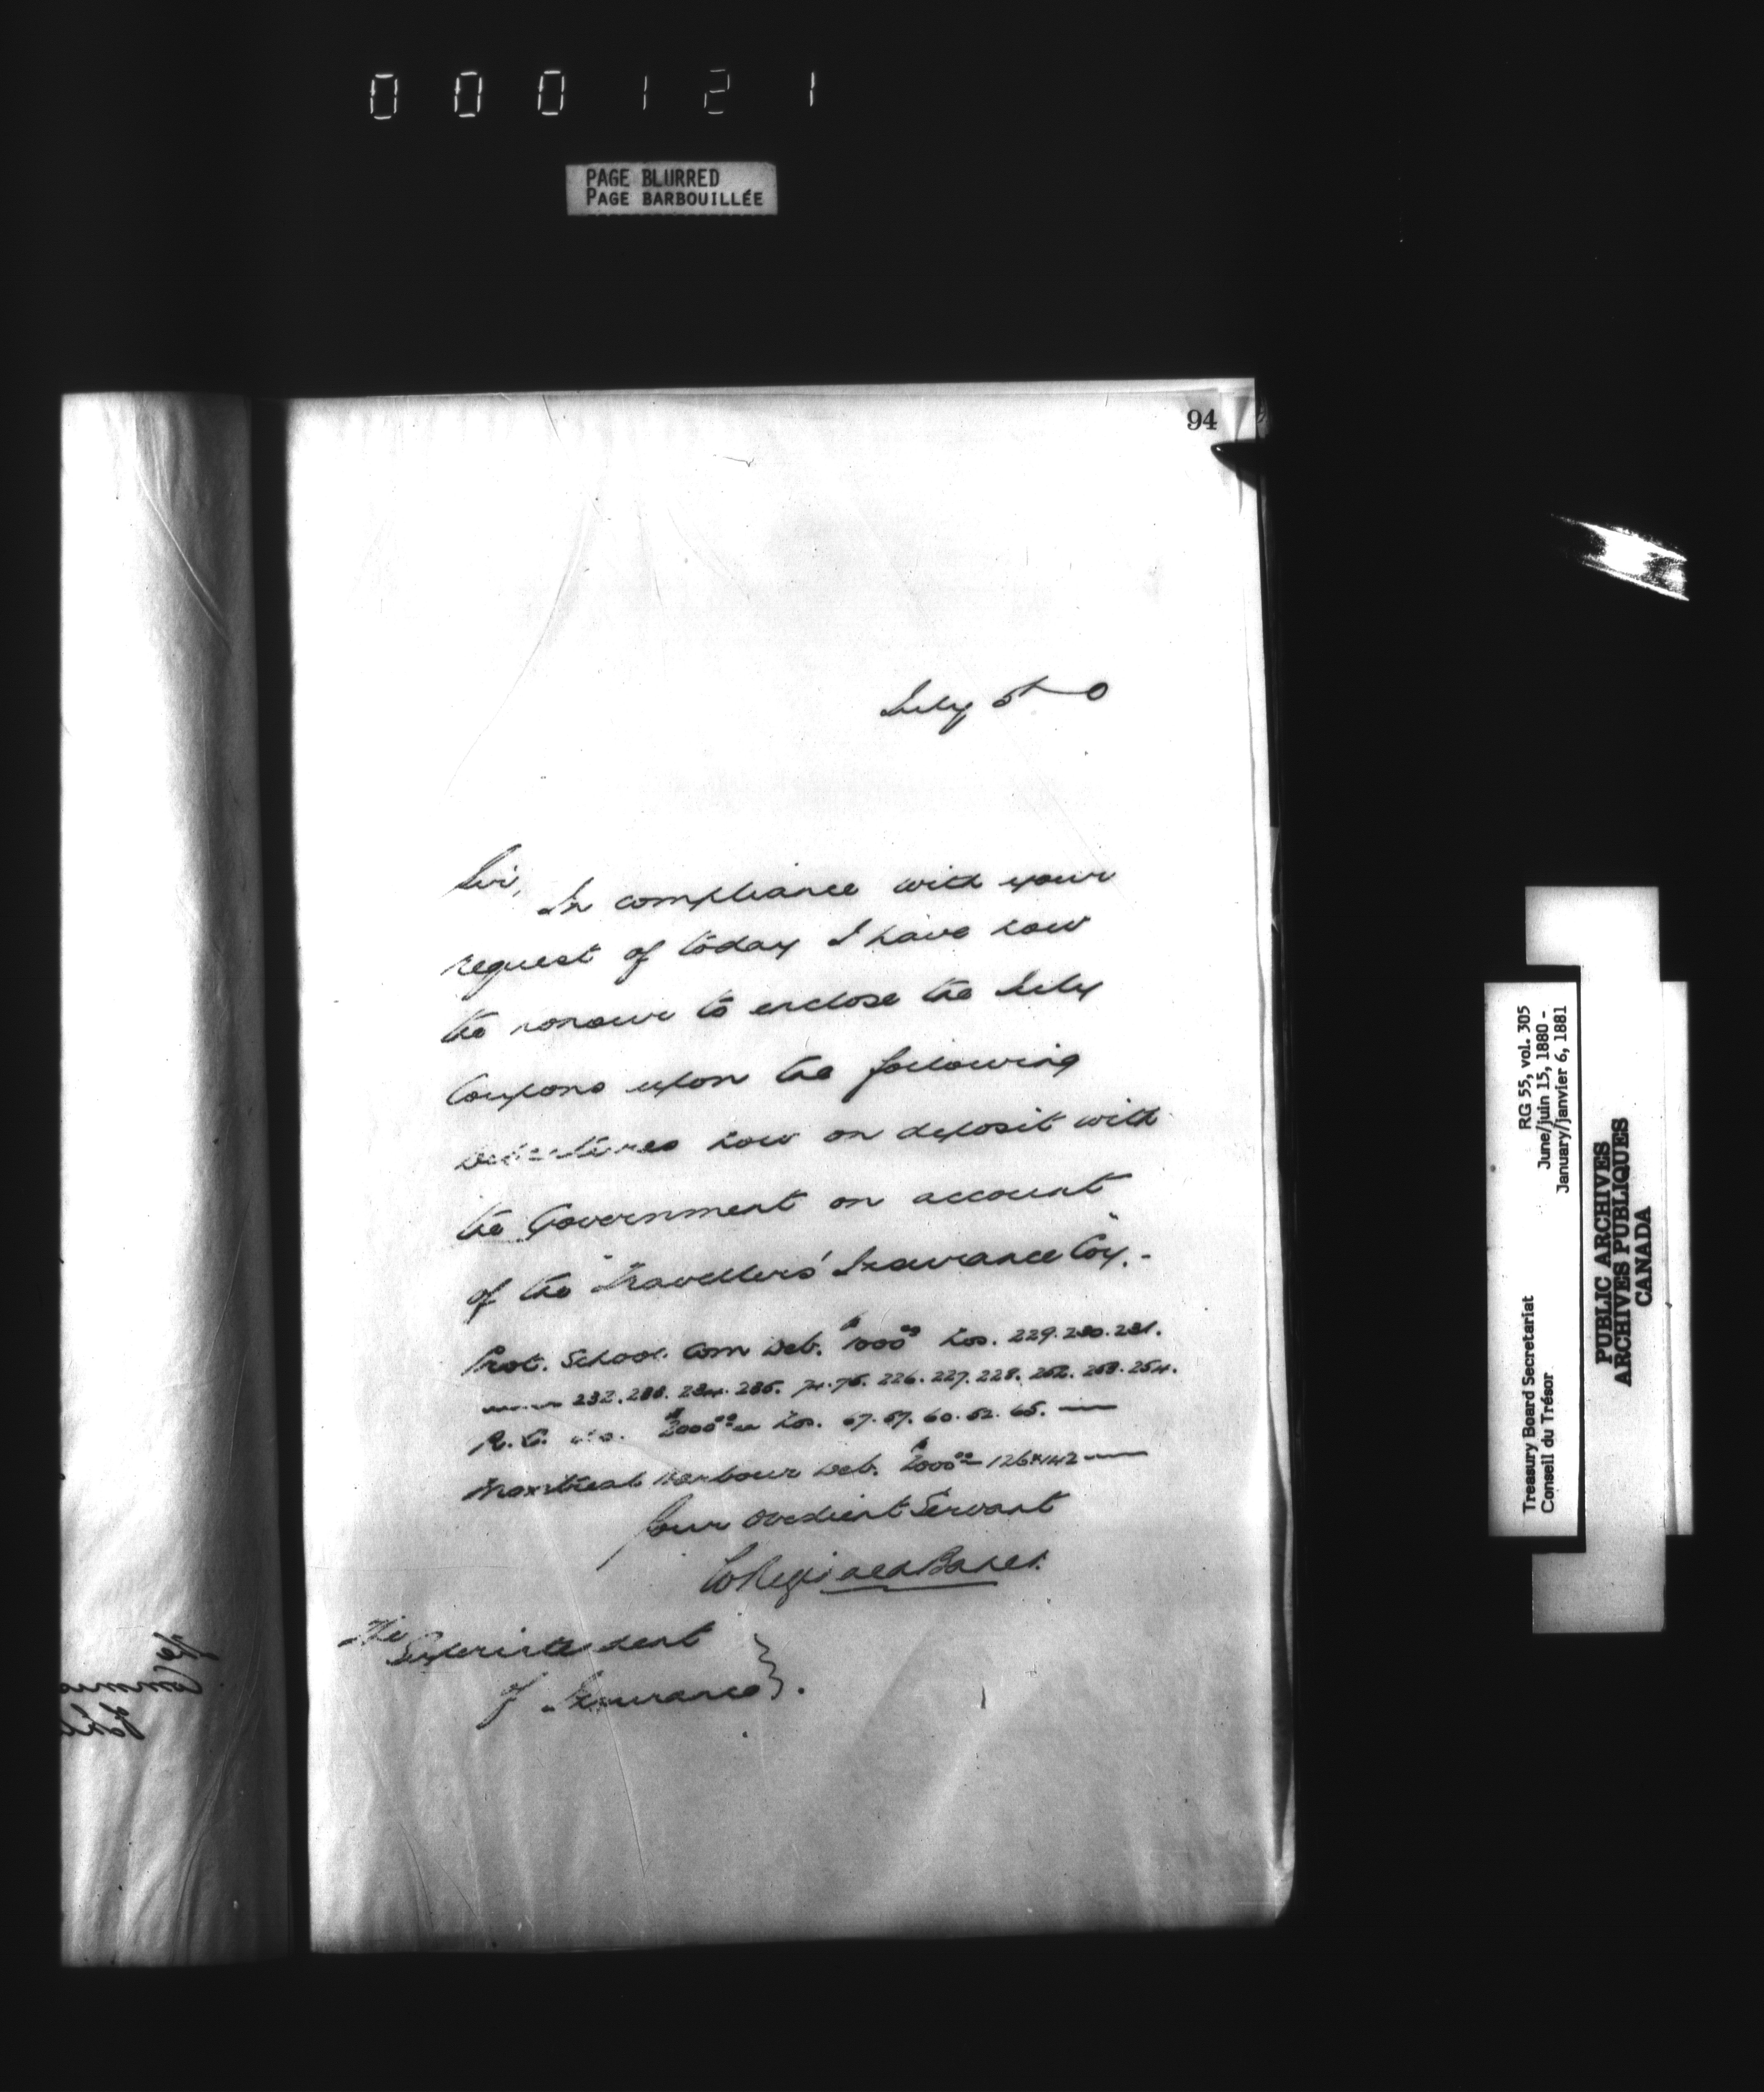 000121
PAGE BLURRED
PAGE BARBOUILLÉE
94
July 5th 0
Sir,
In compliance with your
request of today I have now
the honour to enclose the July
Coupons upon the following
Debentures now on deposit with
the Government on account
of the "Travellers' Insurance Coy."-
Prot. School Com Deb. $1000.00 Nos. 229. 230. 231.
232. 233. 234. 235. 74. 75. 226. 227. 228. 252. 253. 254.
R.C. do. $2000.00 Nos. 67. 57. 60. 52. 65.
Montreal Harbour Deb. $2000.00 126 142
Your Obedient Servant
C Reginald Baker
The
Superintendent
of Insurance
Treasury Board Secretariat RG 55, vol. 305
Conseil du Trésor June/juin 15, 1880 -
January/janvier 6, 1881
PUBLIC ARCHIVES
ARCHIVES PUBLIQUES
CANADA